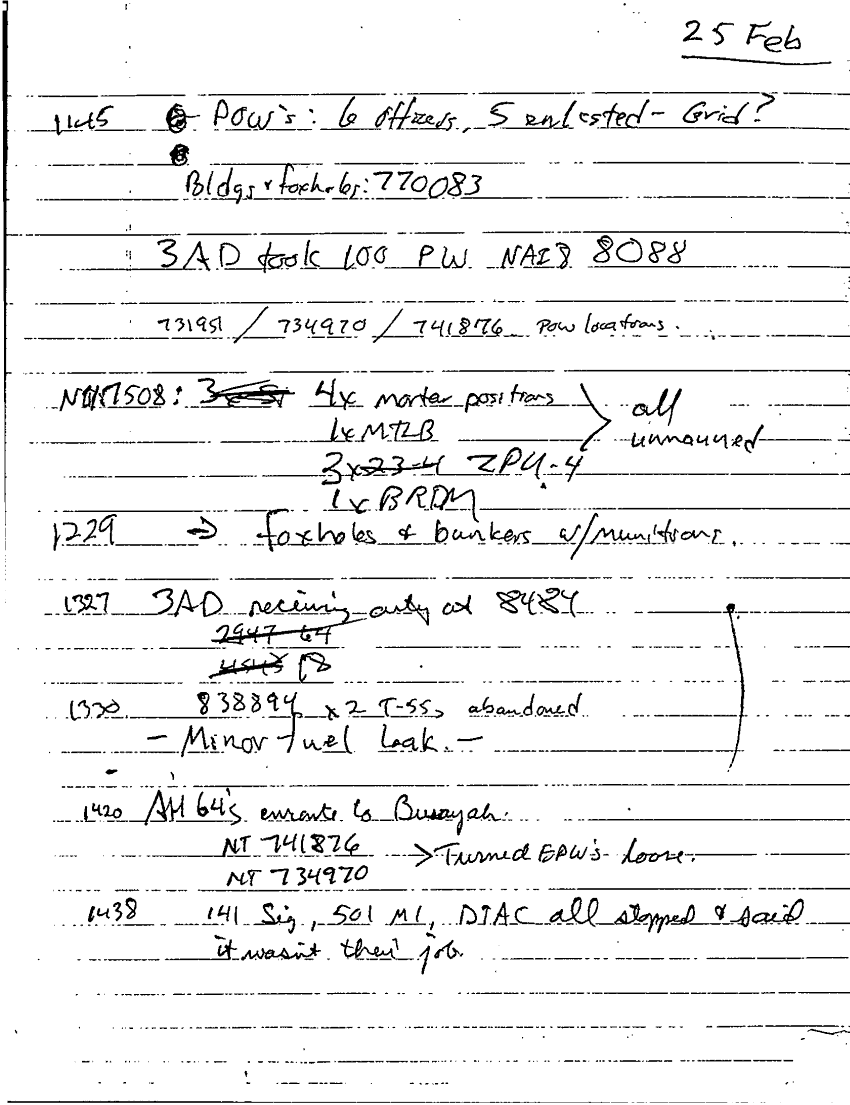 25 Feb
1145 POW's: 6 officers, 5 enlisted - Grid?
Bldgs & foxholes: 770083
3AD took 100 PW NAI8 8088
731951 / 734970 / 741876 POW locations.
7508: 4x mortar positions
all
1x MTLB
unmanned
3x23-4 ZPU-4
1x BRDM
1229 → foxholes & bunkers w/munitions.
1327 3AD receiving arty at 8484
2947 64
18
1330 838894, x2 T-55s abandoned
- Minor fuel leak. -
1420 AH 64's enroute to Busayah.
NT 741876 > Turned EPW's loose.
NT 734970
1438 141 Sig, 501 MI, DTAC all stopped & said
it wasn't their job